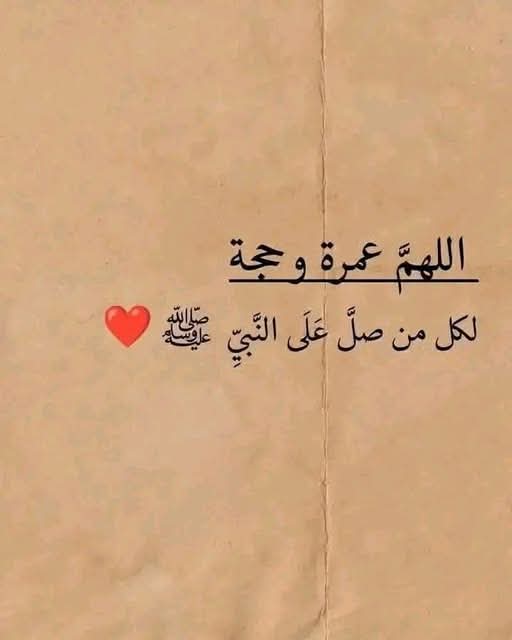 اللهمَّ عمرة و حجة
لكل من صلَّ عَلَى النَّبيِّ ﷺ ❤️